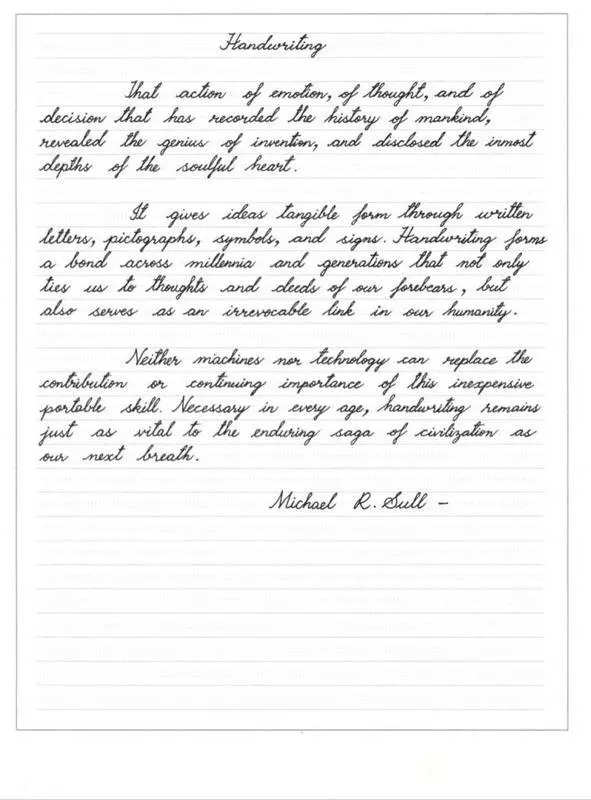 Handwriting
That action of emotion, of thought, and of
decision that has recorded the history of mankind,
revealed the genius of invention, and disclosed the inmost
depths of the soulful heart.
It gives ideas tangible form through written
letters, pictographs, symbols, and signs. Handwriting forms
a bond across millennia and generations that not only
ties us to thoughts and deeds of our forebears, but
also serves as an irrevocable link in our humanity.
Neither machines nor technology can replace the
contribution or continuing importance of this inexpensive
portable skill. Necessary in every age, handwriting remains
just as vital to the enduring saga of civilization as
our next breath.
Michael R. Sull –